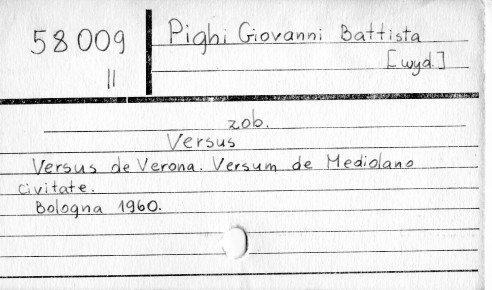 58 009
II
Pighi Giovanni Battista
[wyd.]
zob.
Versus
Versus de Verona. Versum de Mediolano
civitate.
Bologna 1960.